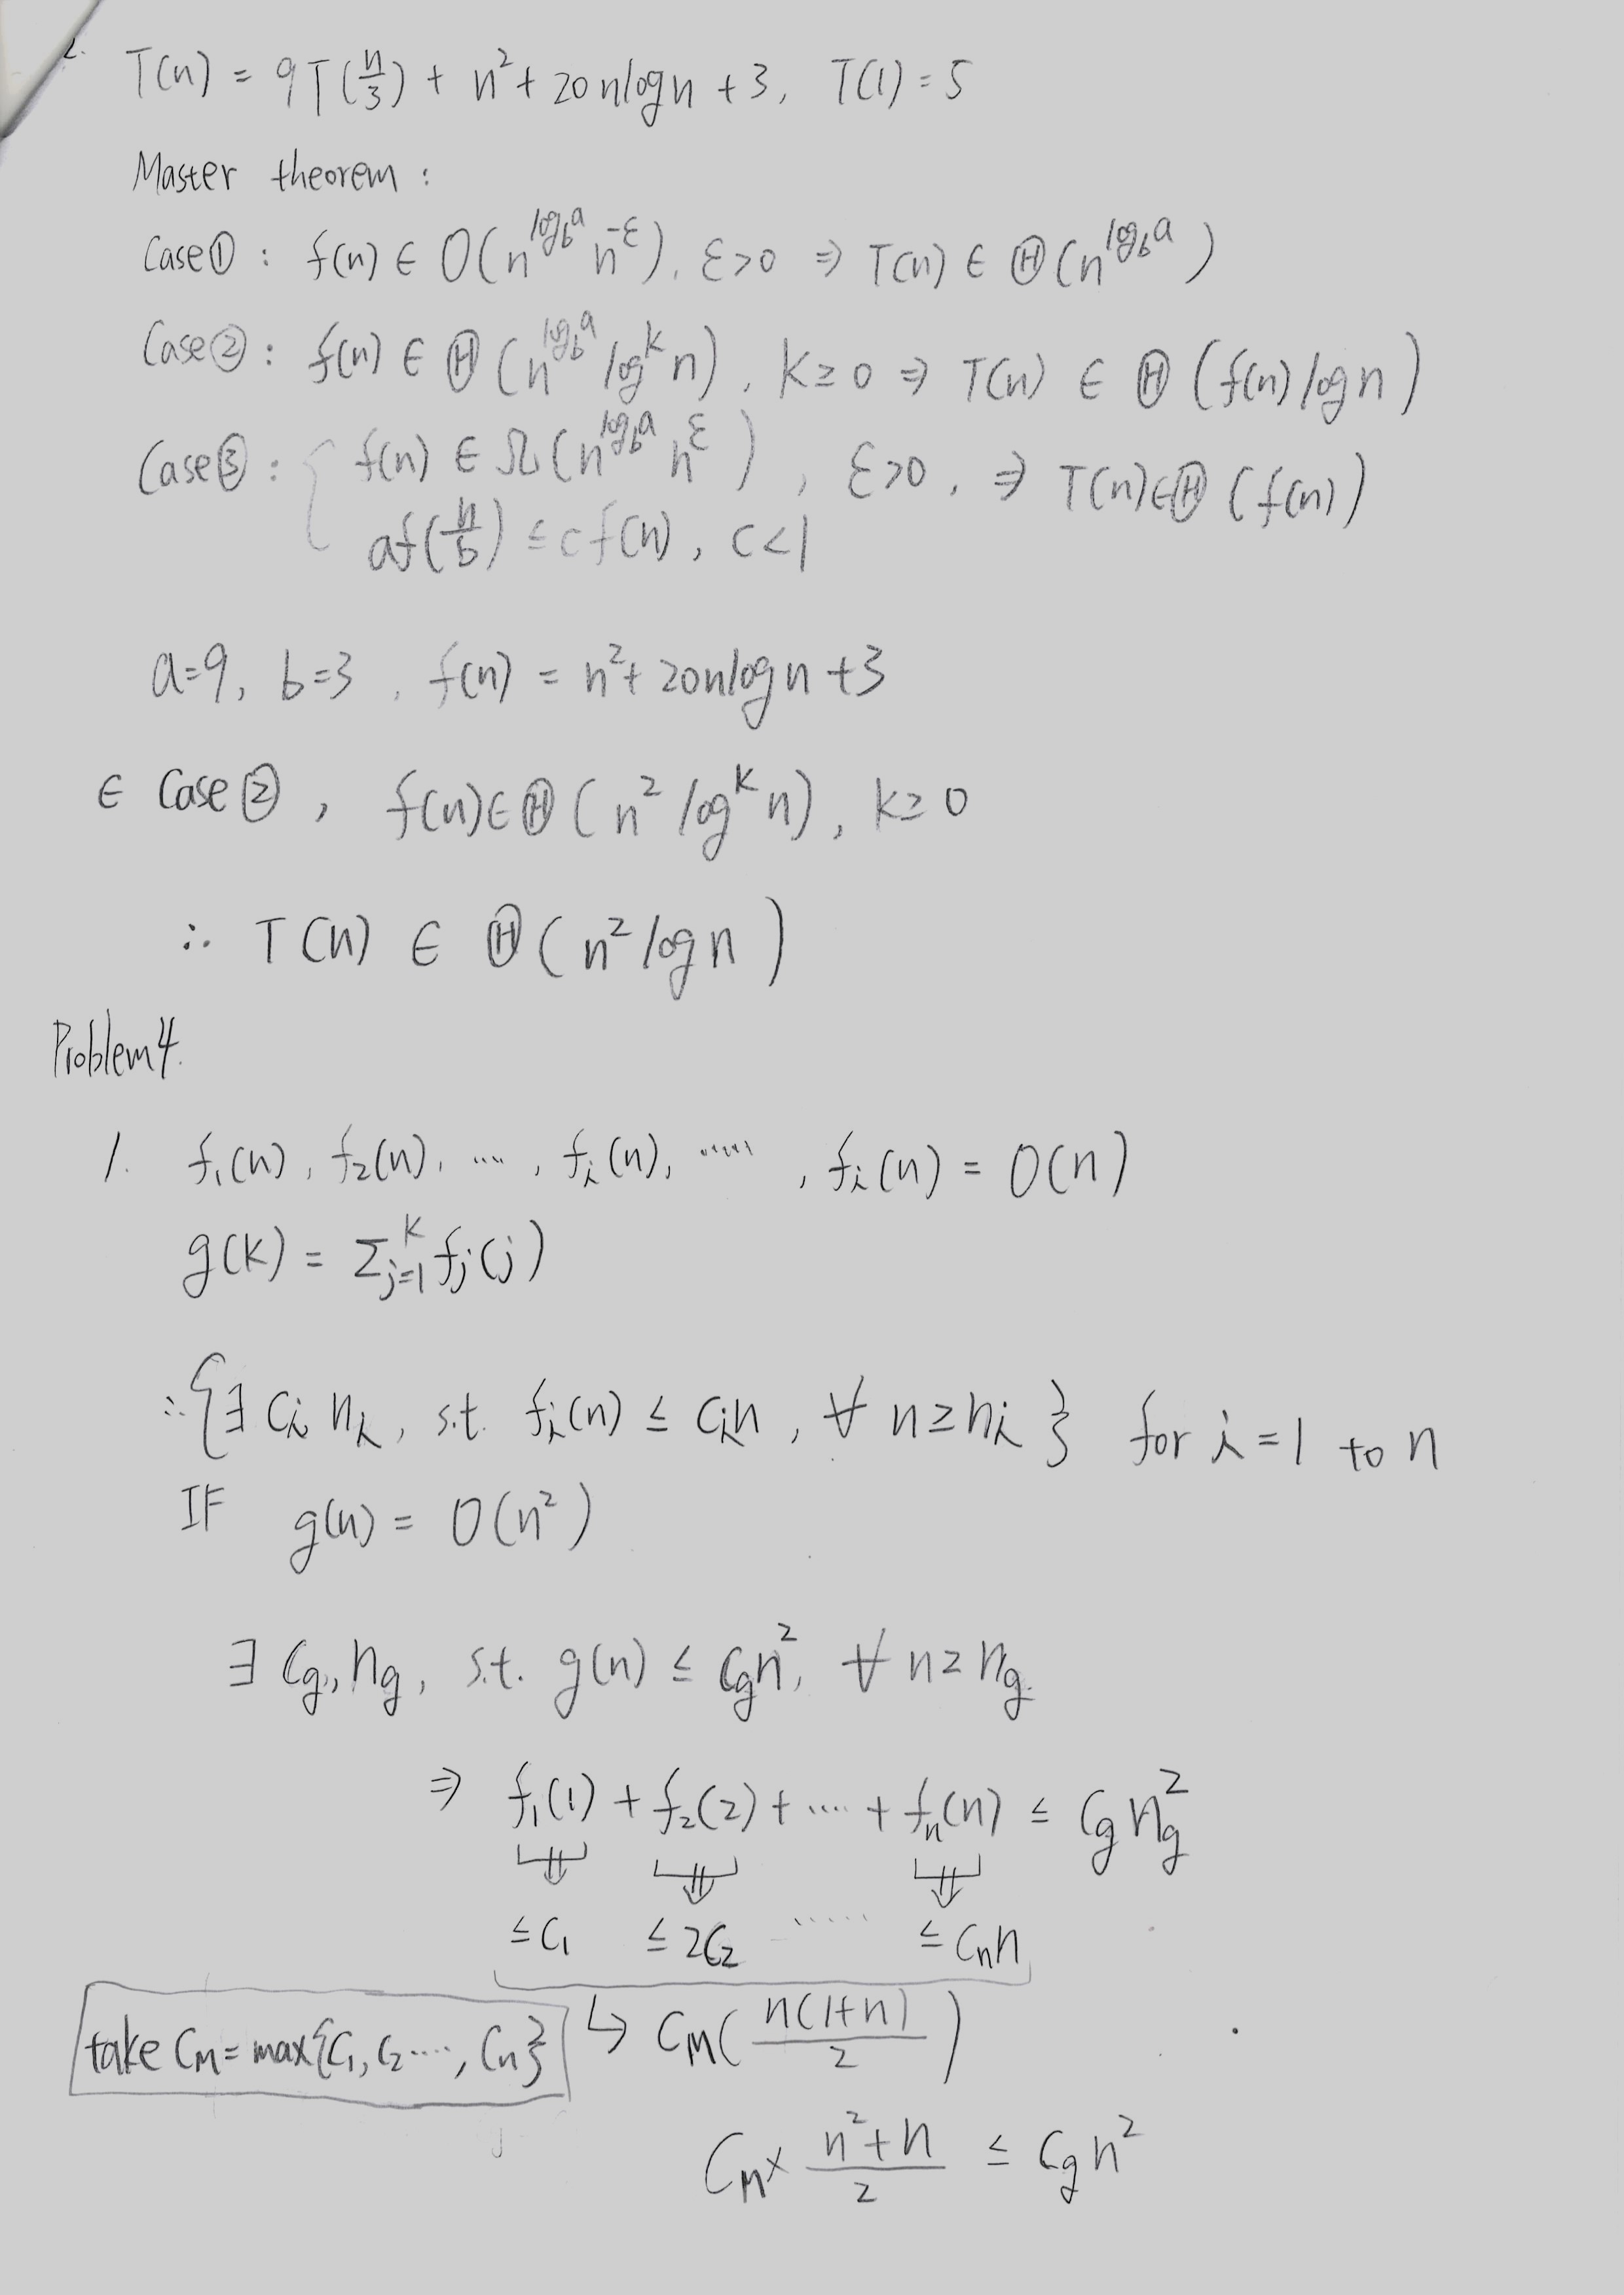 2. T(n) = 9T(n/3) + n² + 20nlogn + 3, T(1) = 5
Master theorem :
Case① : f(n) ∈ O(n^(log_b a) n^(-ε)), ε>0 ⇒ T(n) ∈ Θ(n^(log_b a))
Case② : f(n) ∈ Θ(n^(log_b a) log^k n), k≥0 ⇒ T(n) ∈ Θ(f(n) log n)
Case③ : { f(n) ∈ Ω(n^(log_b a) n^ε), ε>0, ⇒ T(n) ∈ Θ(f(n))
af(n/b) ≤ cf(n), c<1
a=9, b=3, f(n) = n² + 20nlogn + 3
∈ Case②, f(n) ∈ Θ(n² log^k n), k≥0
∴ T(n) ∈ Θ(n² log n)
Problem 4.
1. f₁(n), f₂(n), ..., fᵢ(n), ....., fᵢ(n) = O(n)
g(k) = Σ_{j=1}^k f_j(j)
∴ {∃ cᵢ nᵢ, s.t. fᵢ(n) ≤ cᵢn, ∀ n≥nᵢ} for i=1 to n
IF g(n) = O(n²)
∃ c_g, n_g, s.t. g(n) ≤ c_g n², ∀ n≥n_g.
⇒ f₁(1) + f₂(2) + .... + fₙ(n) ≤ c_g n_g²
≤c₁ ≤2c₂ ...... ≤cₙn
take c_M = max{c₁, c₂...., cₙ} ↳ c_M(n(1+n)/2)
c_M × (n²+n)/2 ≤ c_g n²